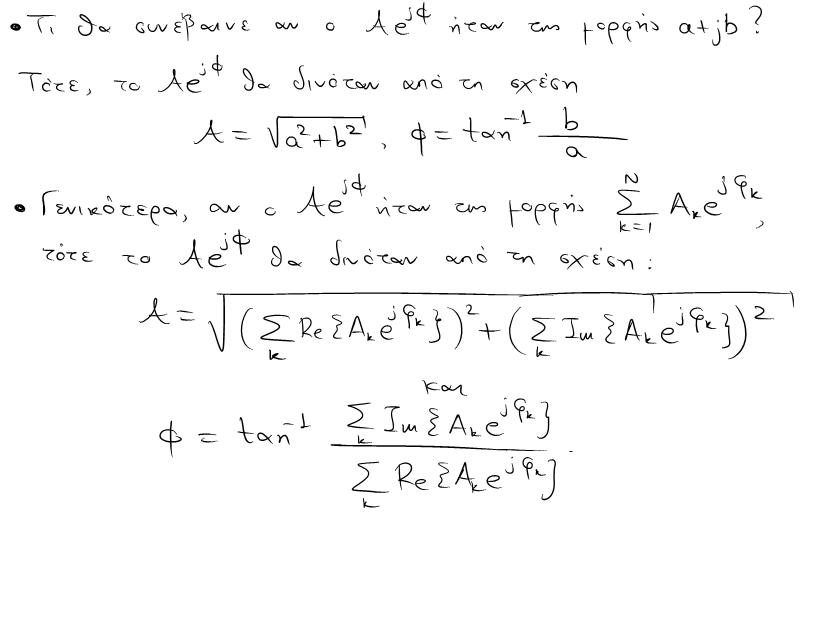 • Τι θα συνέβαινε αν ο Ae^{jφ} ήταν της μορφής a+jb?
Τότε, το Ae^{jφ} θα δινόταν από τη σχέση
A = √(a²+b²), φ = tan⁻¹ b/a
• Γενικότερα, αν ο Ae^{jφ} ήταν της μορφής ∑_{k=1}^{N} A_k e^{jφ_k},
τότε το Ae^{jφ} θα δινόταν από τη σχέση:
A = √((∑_k Re{A_k e^{jφ_k}})² + (∑_k Im{A_k e^{jφ_k}})²)
και
φ = tan⁻¹ (∑_k Im{A_k e^{jφ_k}})/(∑_k Re{A_k e^{jφ_k}}).